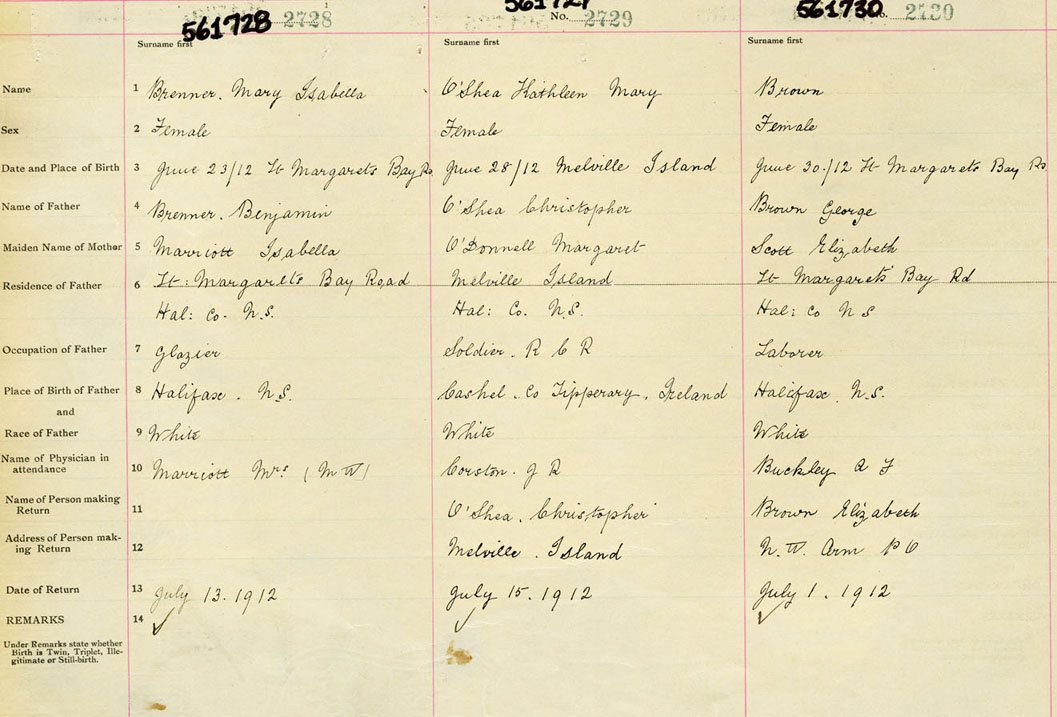 561728 2728
561729 No. 2729
561730 No. 2730
Surname first Surname first Surname first
Name 1 Brenner. Mary Isabella O'Shea Kathleen Mary Brown
Sex 2 Female Female Female
Date and Place of Birth 3 June 23/12 St Margarets Bay Rd June 28/12 Melville Island June 30./12 St Margarets Bay Rd
Name of Father 4 Brenner. Benjamin O'Shea Christopher Brown George
Maiden Name of Mother 5 Marriott Isabella O'Donnell Margaret Scott Elizabeth
Residence of Father 6 St: Margarets Bay Road Melville Island St Margarets Bay Rd
Hal: Co. N.S. Hal: Co. N.S. Hal: Co N S
Occupation of Father 7 Glazier Soldier. R C R Laborer
Place of Birth of Father 8 Halifax. N.S. Cashel. Co Tipperary. Ireland Halifax. N.S.
and
Race of Father 9 White White White
Name of Physician in
attendance 10 Marriott Mrs (M W) Corston. J R Buckley A F
Name of Person making
Return 11 O'Shea. Christopher Brown Elizabeth
Address of Person mak-
ing Return 12 Melville. Island N. W. Arm P O
Date of Return 13 July 13. 1912 July 15. 1912 July 1. 1912
REMARKS 14
Under Remarks state whether
Birth is Twin, Triplet, Ille-
gitimate or Still-birth.